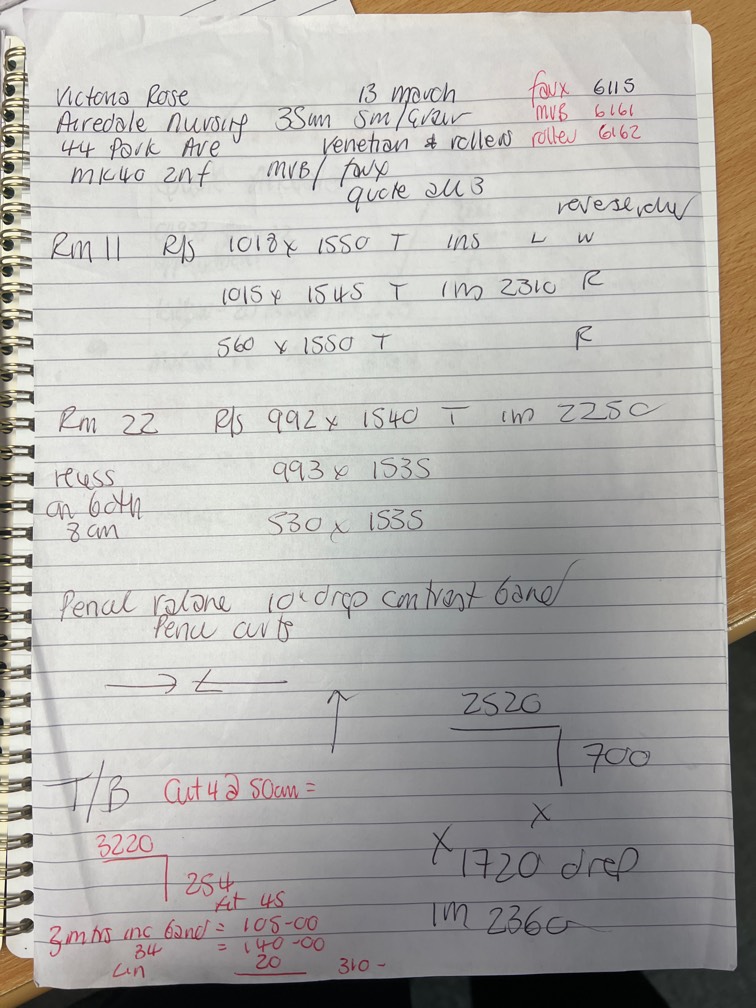 Victoria Rose 13 march faux 6115
Airedale nursing 35mm sm/ mvb 6161
44 Park Ave venetian & rollers roller 6162
MK40 2nf MVB/ faux
quote all 3
reverse
Rm 11 R/s 1018 x 1550 T ins L W
1015 x 1545 T IM 2310 R
560 x 1550 T R
Rm 22 R/s 992 x 1540 T IM 2250
recess 993 x 1535
on both
8cm 530 x 1535
Pencil drop contrast band
Pencil
2520
700
T/B Cut 4 @ 50cm =
x
3220
254
x 1720 drop
At 45
IM 2360
3 mtrs inc band = 105-00
34 = 140-00
Lin 20 310-